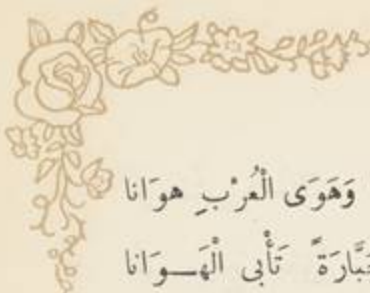 وَهَوَى الْعُرْبِ هوَانا
تَأْبى الْهَـــوَانا